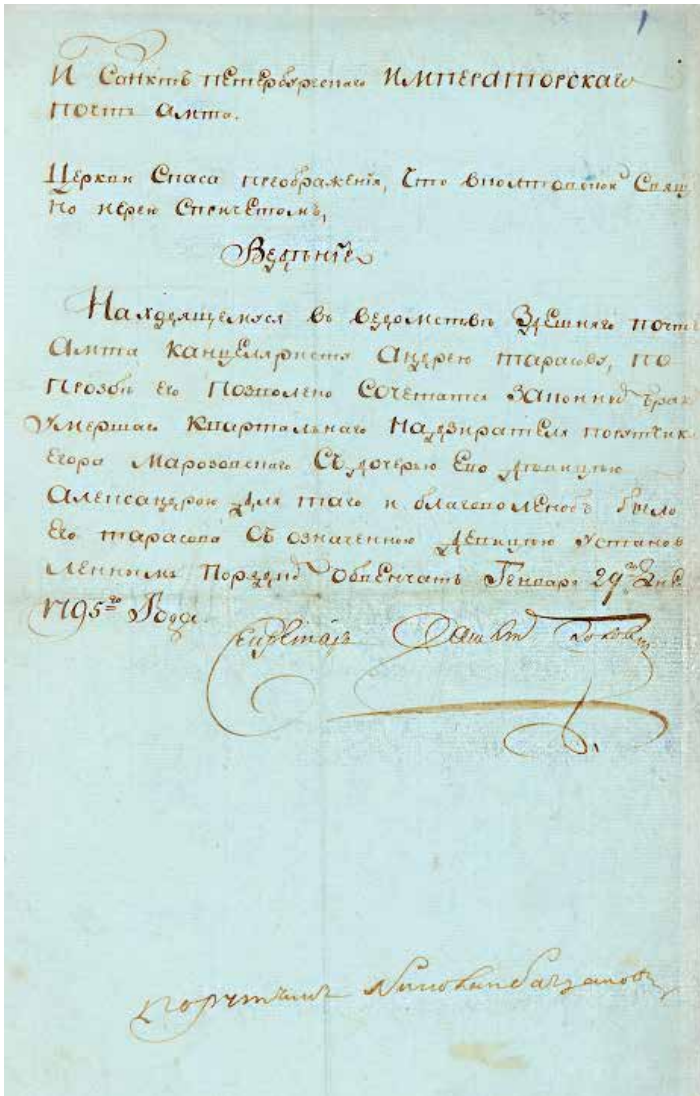 И Санктъ петербургскаго Императорскаго
почтъ амта.
Церкви Спаса преображенія, Что вполмпопскои Свящ
но иерею Спричетомъ,
Ведѣніе
Находящемуся въ ведомствѣ Здешняго почтъ
Амта канцеляристу андрею тарасову, по
прозбѣ его позволено Сочетатся законнымъ брак
Умершаго Квартальнаго надзирателя поручика
Егора Марозовскаго Съ дочерью Ево девицею
Александрою для таго и благоволенобъ было
Его тарасова Съ означенною девицею установ
леннымъ порядкомъ обвенчать Генваря 29го дня
1795го Года.
Секретарь
порутчикъ